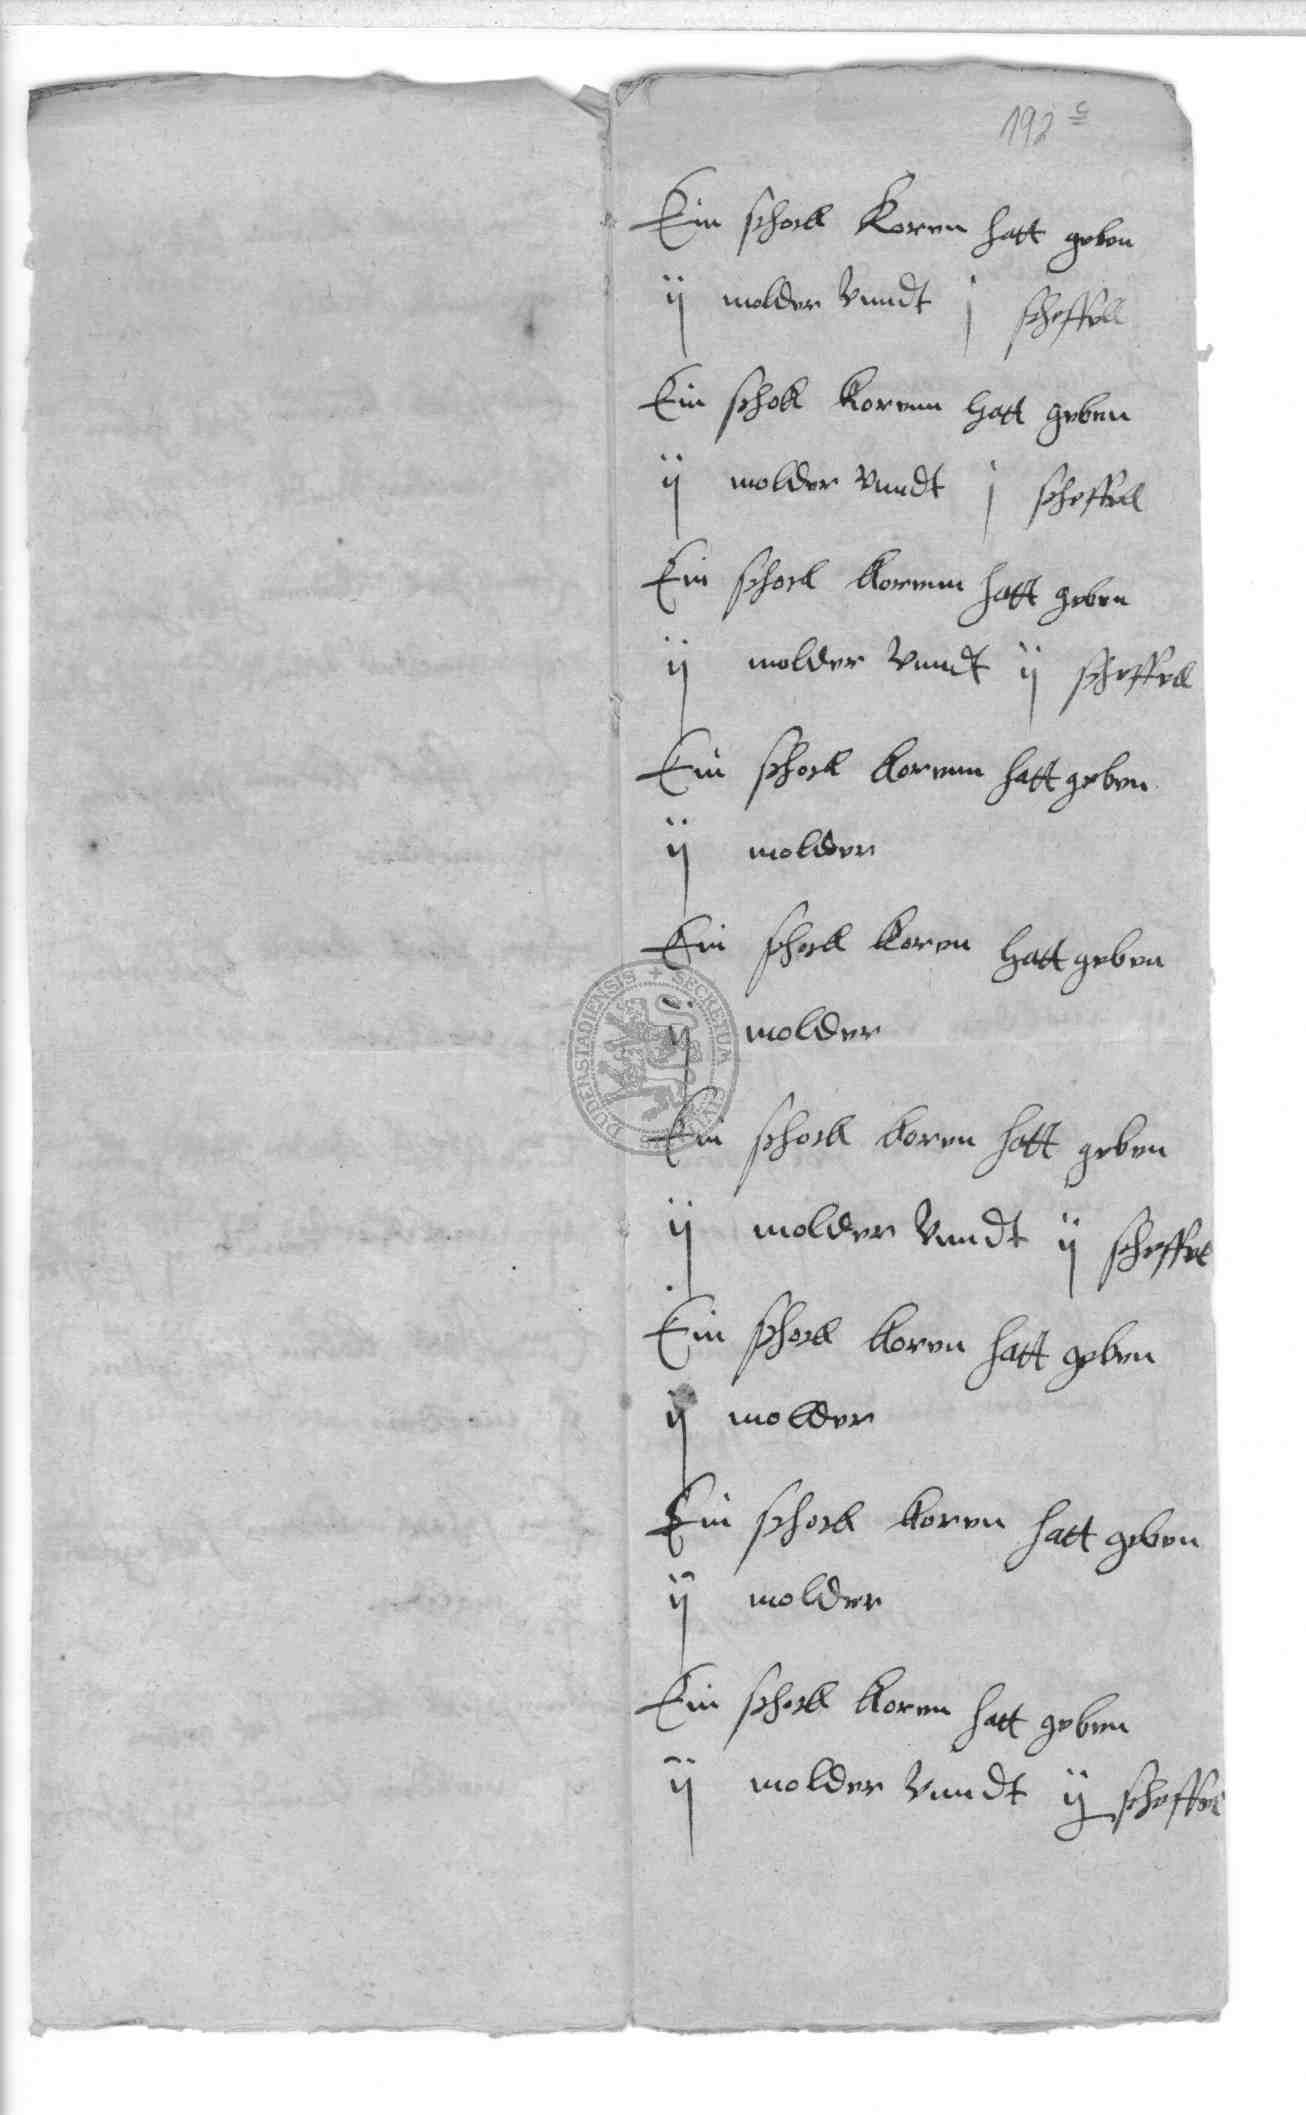 192 c
Ein schock Koren hatt geben
ij molder Vnndt j scheffell
Ein schock korenn hatt geben
ij molder vnndt j scheffell
Ein schock korenn hatt geben
ij molder Vnndt ij scheffell
Ein schock korenn hatt geben
ij molder
Ein schock koren hatt geben
ij molder
Ein schock koren hatt geben
ij molder Vnndt ij scheffel
Ein schock koren hatt geben
ij molder
Ein schock koren hatt geben
ij molder
Ein schock koren hatt geben
ij molder Vnndt ij scheffel
SECRETUM DUDERSTADIENSIS